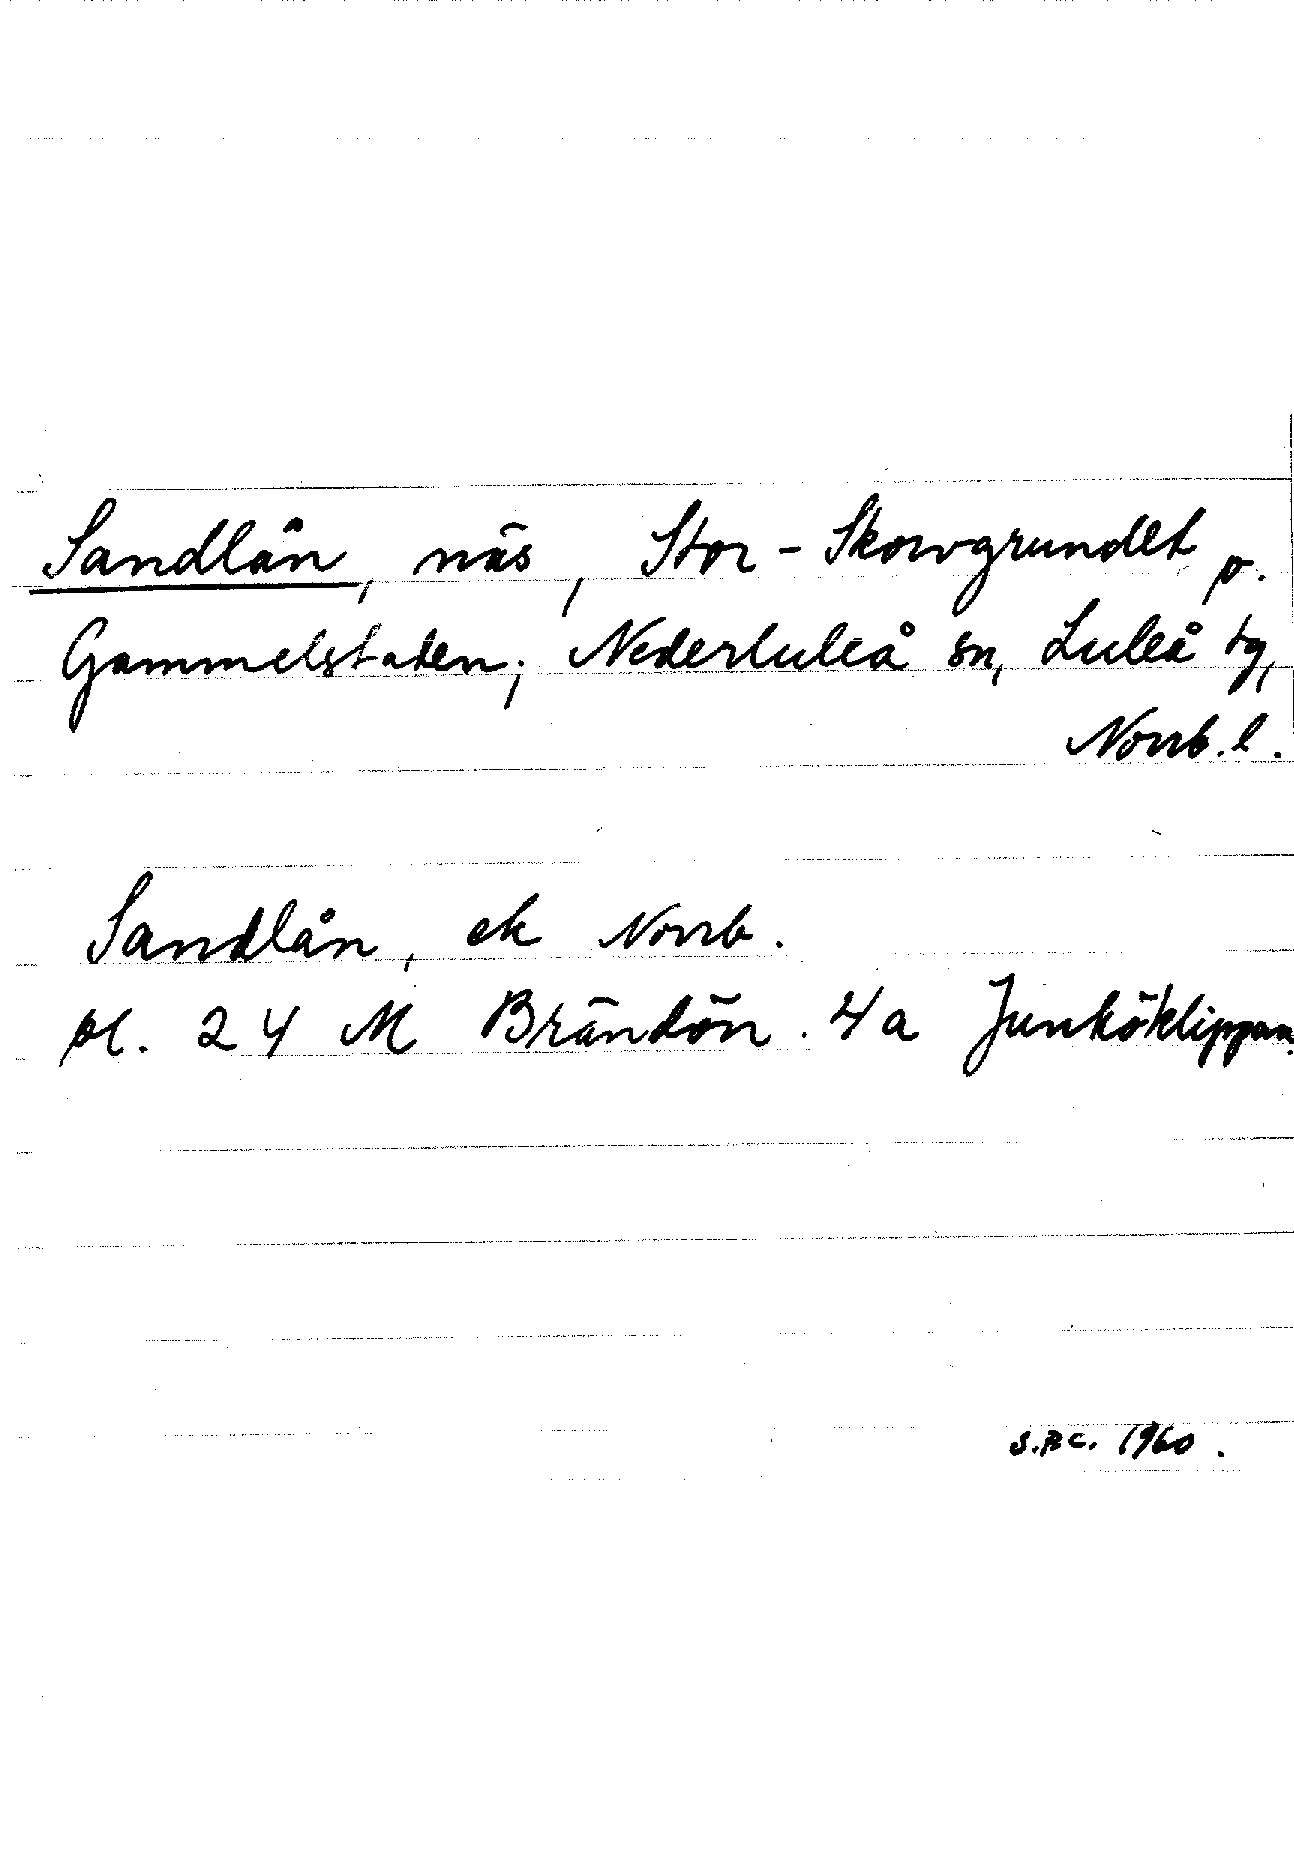 Sandlån, näs, Stor-Skorvgrundet p.
Gammelstaden; Nederluleå sn, Luleå tg,
Norrb. l.
Sandlån, ek Norrb.
bl. 24 M Brändön. 4a Junköklippan.
S.B.C. 1960.